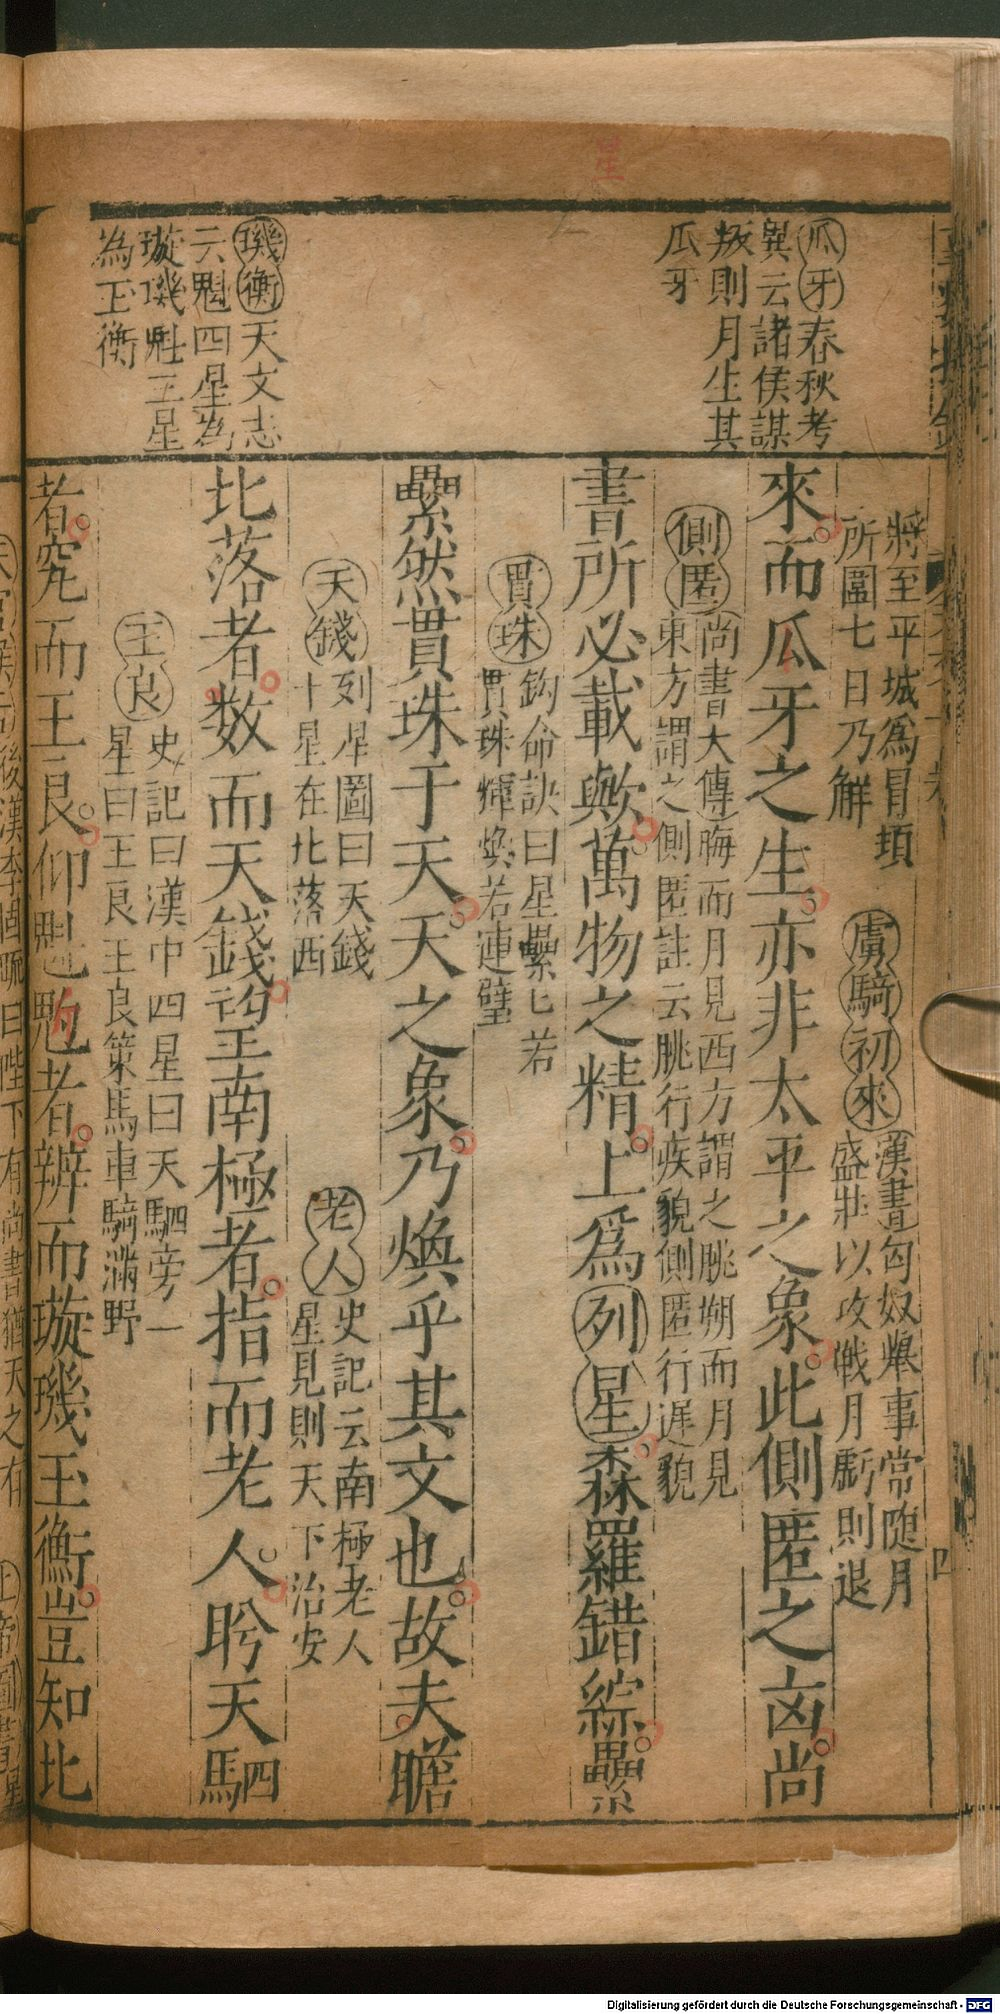 星
瓜牙春秋考
異云諸侯謀
叛則月生其
瓜牙
璣衡天文志
云魁四星為
璇璣魁三星
為玉衡
將至平城為冒頓
所圍七日乃解
虜騎初來
漢書匈奴舉事常随月
盛壯以攻戰月虧則退
來而瓜牙之生亦非太平之象此側匿之卤尚
側匿
尚書大傳晦而月見西方謂之脁朔而月見
東方謂之側匿註云脁行疾貌側匿行遲貌
書所必載歟萬物之精上爲列星森羅錯綜纍
貫珠
鈎命訣曰星纍匕若
貫珠煇煥若連璧
纍然貫珠于天天之象乃煥乎其文也故夫瞻
天錢
列星圖曰天錢
十星在北落西
老人
史記云南極老人
星見則天下治安
北落者数而天錢初望南極者指而老人聆天駟
王良
史記曰漢中四星曰天駟旁一
星曰王良王良策馬車騎滿野
者究而王良仰魁魁者辨而璇璣玉衡豈知北
後漢李固
曰陛下有尚書猶天之有
四
Digitalisierung gefördert durch die Deutsche Forschungsgemeinschaft - DFG